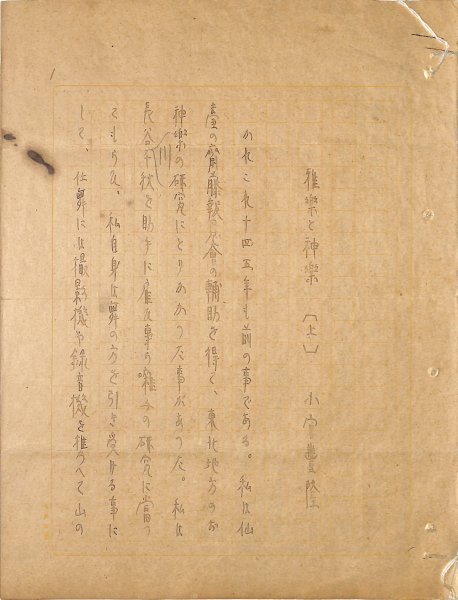 雅樂と神樂　〔上〕　　小宮豊隆
かれこれ十四五年も前の事である。私は仙
臺の齋藤報恩會の輔助を得て、東北地方のお
神樂の研究にとりかかつた事があつた。私は
長谷川千秋を助手に雇ひ事ら囃子の研究に當つ
てもらひ、私自身は舞の方を引き受ける事に
して、仕舞には撮影機や録音機を携へて山の